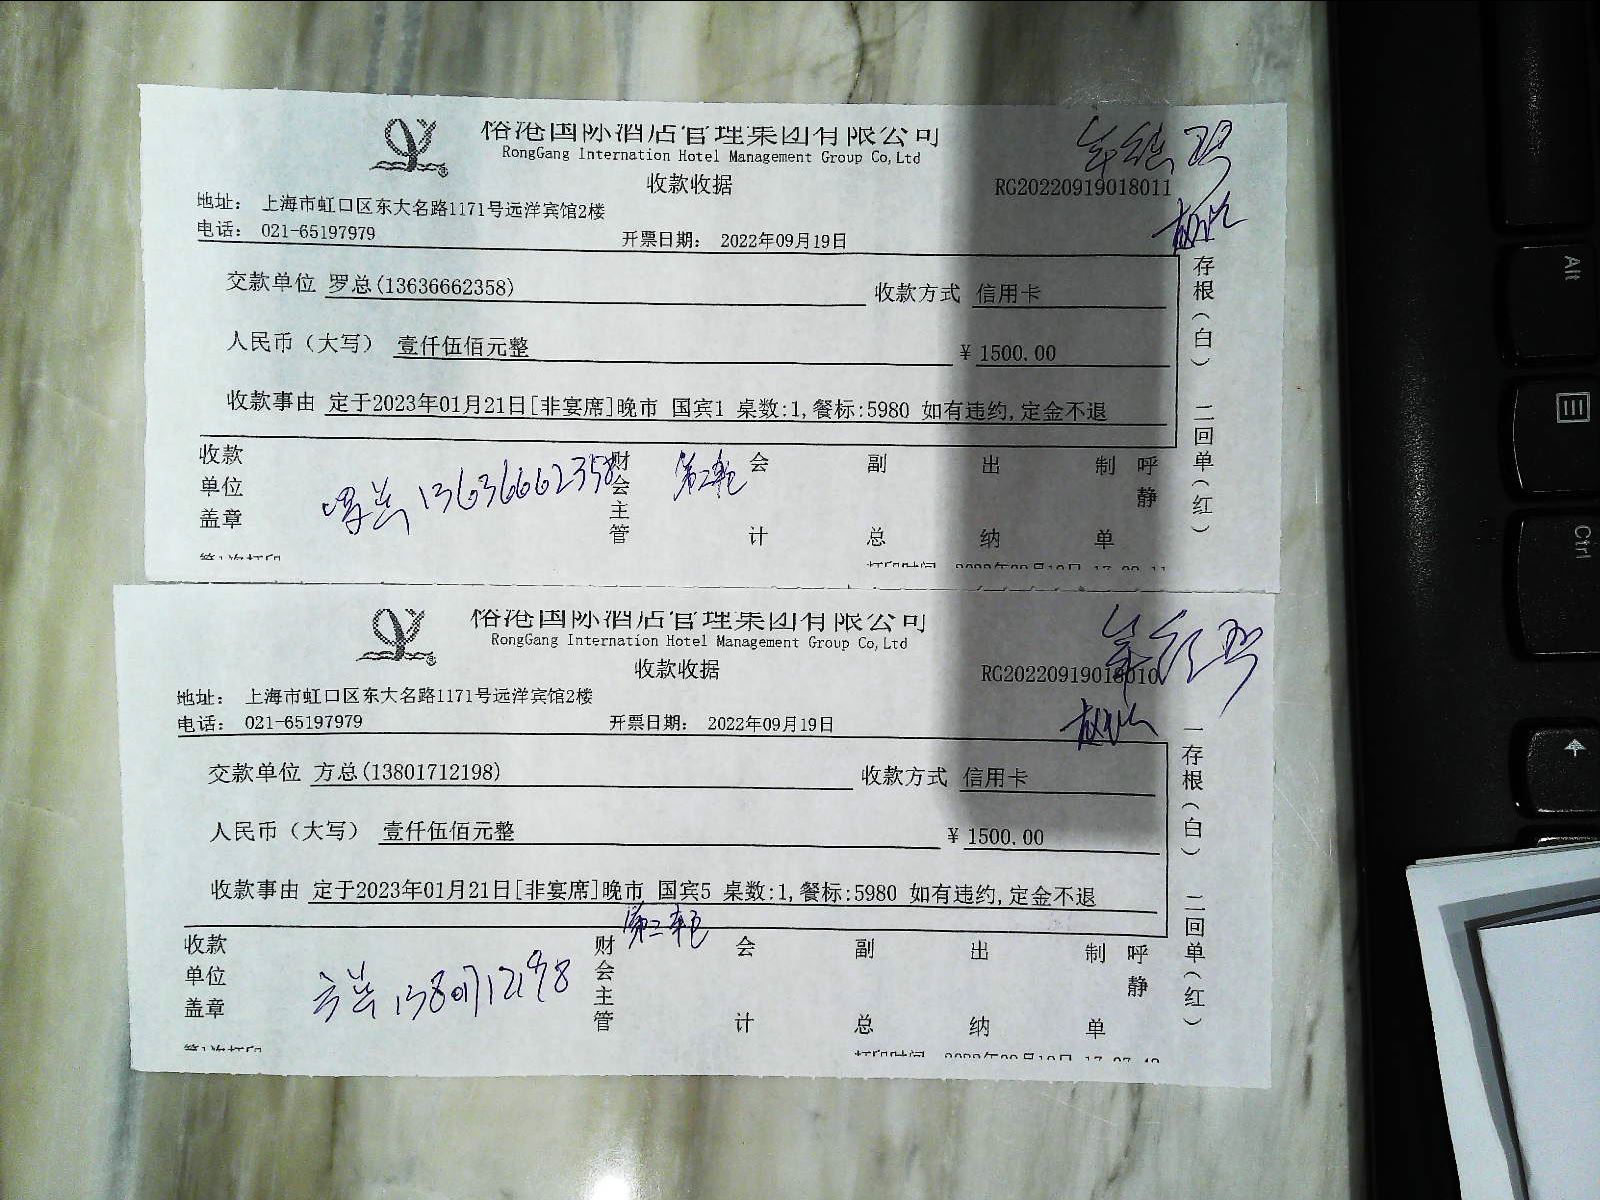 榕港国际酒店管理集团有限公司
RongGang Internation Hotel Management Group Co,Ltd
收款收据
RG20220919018011
地址： 上海市虹口区东大名路1171号远洋宾馆2楼
电话： 021-65197979
开票日期： 2022年09月19日
交款单位 罗总(13636662358)
收款方式 信用卡
人民币（大写） 壹仟伍佰元整
¥ 1500.00
收款事由 定于2023年01月21日[非宴席]晚市 国宾1 桌数:1,餐标:5980 如有违约,定金不退
存根（白） 二回单（红）
收款单位盖章
罗总 13636662358
财会主管
第二轮
会计
副总
出纳
制单
呼静
第1次打印
打印时间
榕港国际酒店管理集团有限公司
RongGang Internation Hotel Management Group Co,Ltd
收款收据
RG20220919018010
地址： 上海市虹口区东大名路1171号远洋宾馆2楼
电话： 021-65197979
开票日期： 2022年09月19日
交款单位 方总(13801712198)
收款方式 信用卡
人民币（大写） 壹仟伍佰元整
¥ 1500.00
收款事由 定于2023年01月21日[非宴席]晚市 国宾5 桌数:1,餐标:5980 如有违约,定金不退
一存根（白） 二回单（红）
收款单位盖章
方总 13801712198
财会主管
第二轮
会计
副总
出纳
制单
呼静
第1次打印
打印时间
Alt
Ctrl